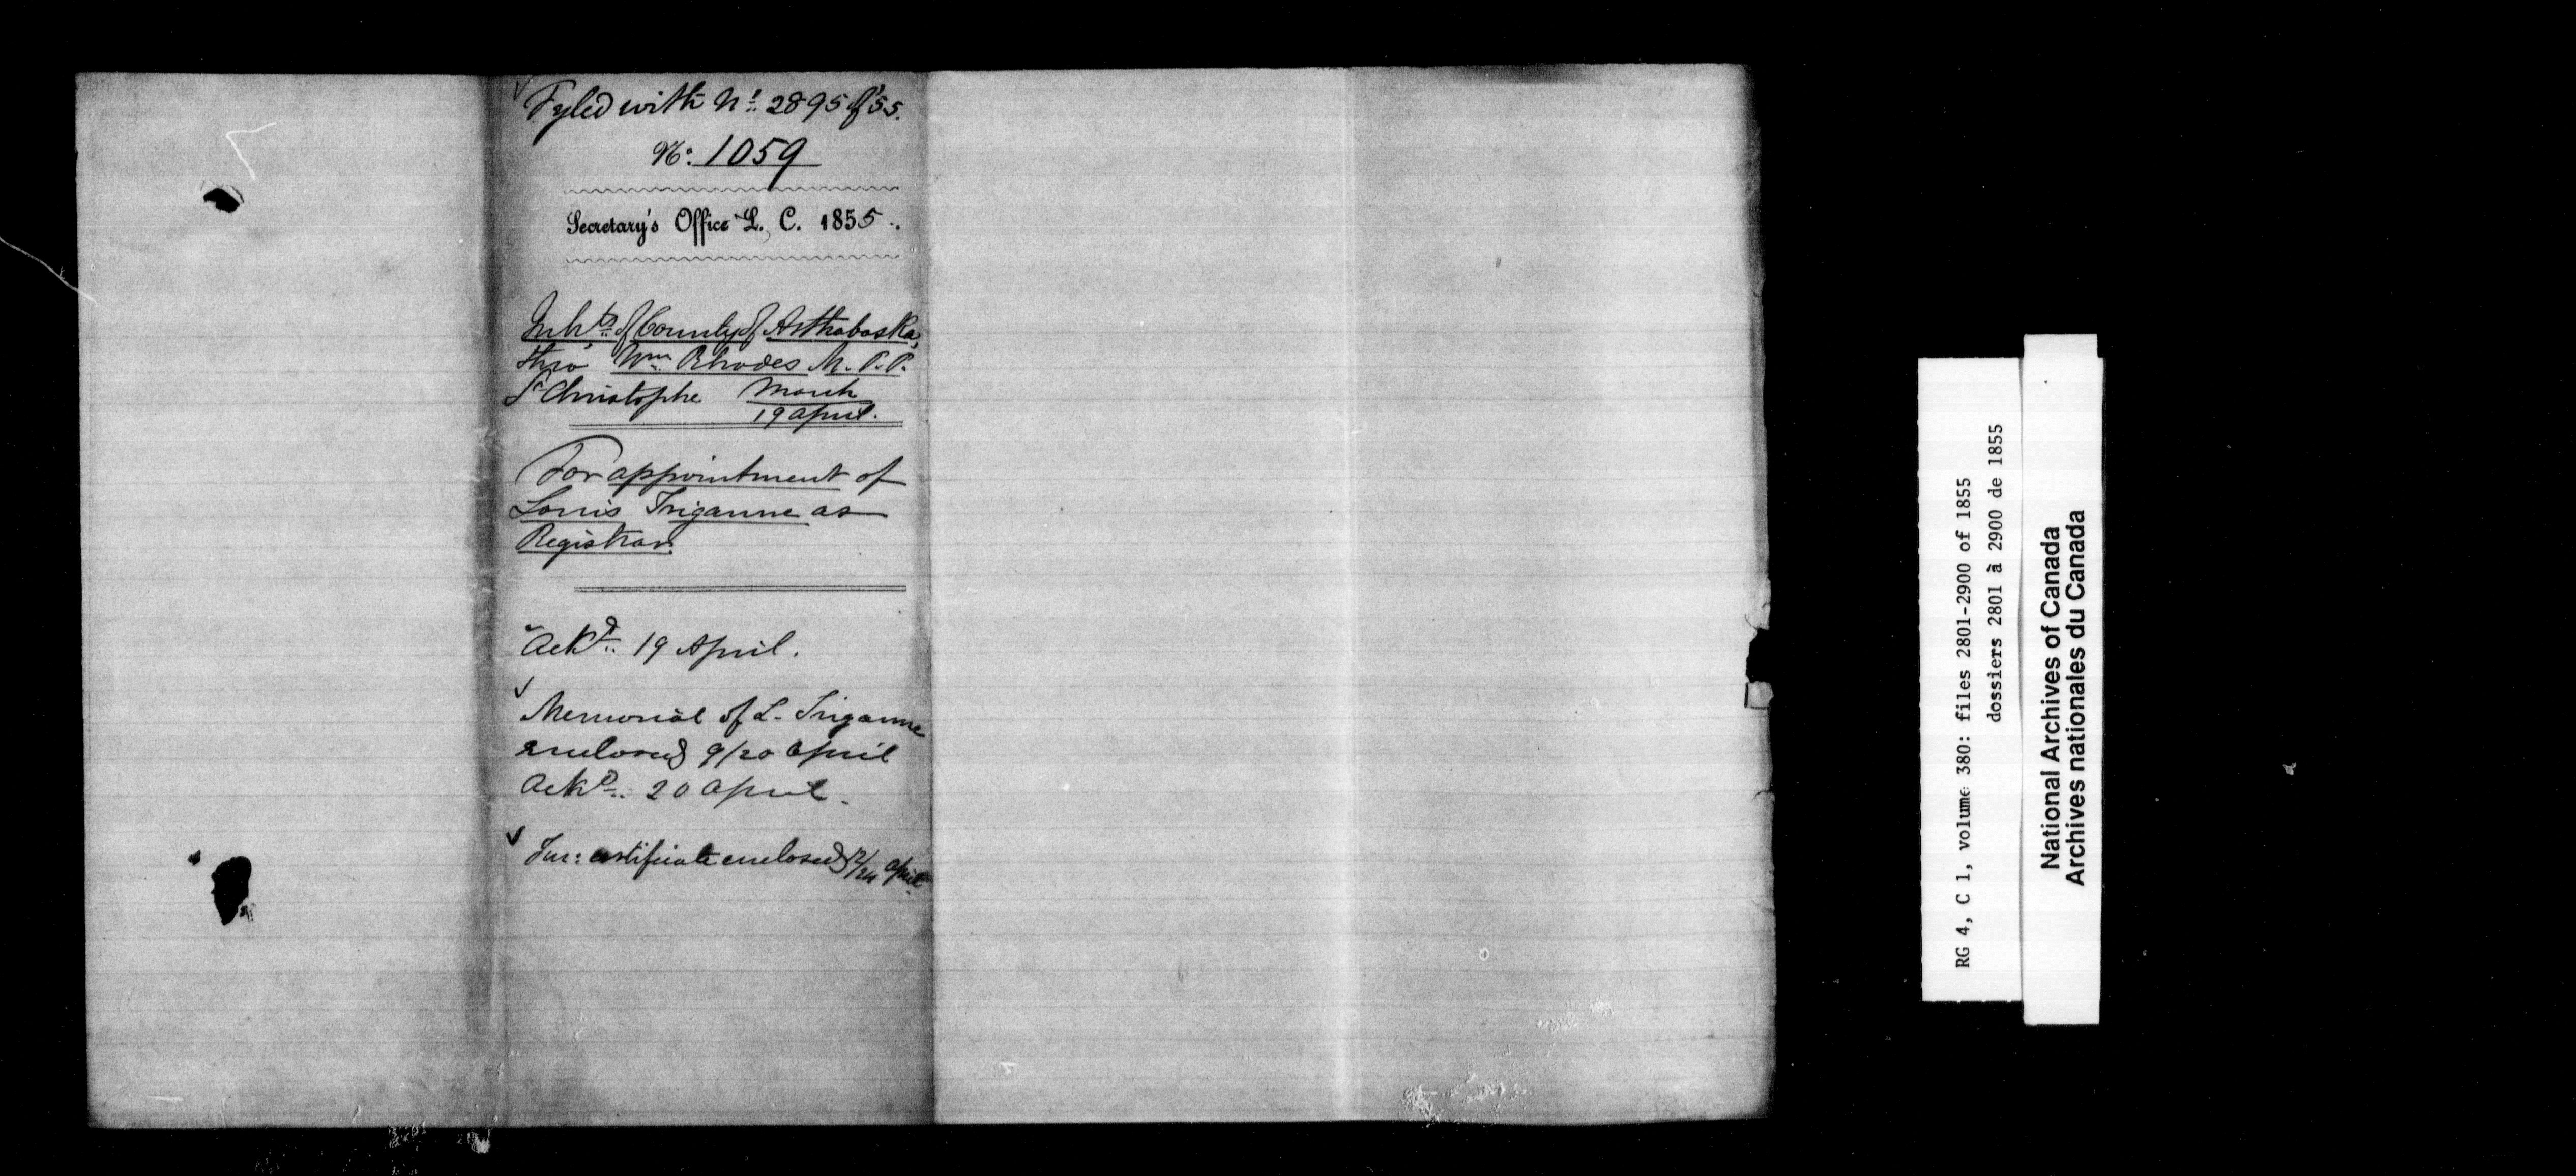 Fyled with No. 2895 of '55.
No. 1059
Secretary's Office L. C. 1855.
Inhts. of County of Arthabaska,
thro' Wm. Rhodes M.P.P.
St Christophe March
19 April.
For appointment of
Louis Triganne as
Registrar.
Ackd. 19 April.
Memorial of L. Triganne
enclosed 9/20 April
Ackd. 20 April.
Fur: certificate enclosed 12/24 April
RG 4, C 1, volume 380: files 2801-2900 of 1855
dossiers 2801 à 2900 de 1855
National Archives of Canada
Archives nationales du Canada